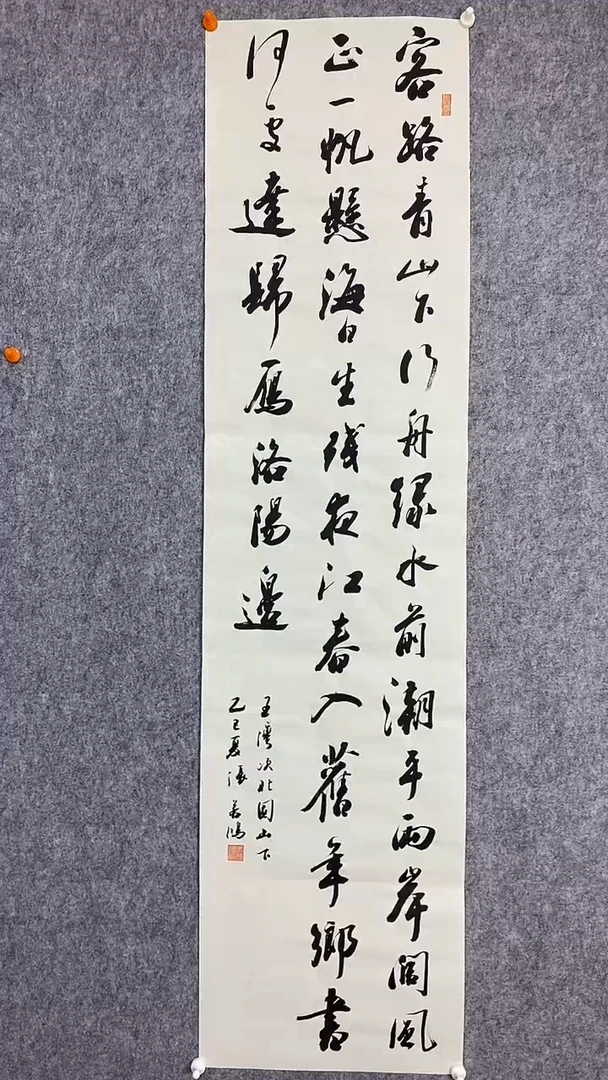 客路青山下行舟緑水前潮平兩岸闊風
正一帆懸海日生殘夜江春入舊年鄉書
何處達歸雁洛陽邊
王灣次北固山下
乙巳夏張